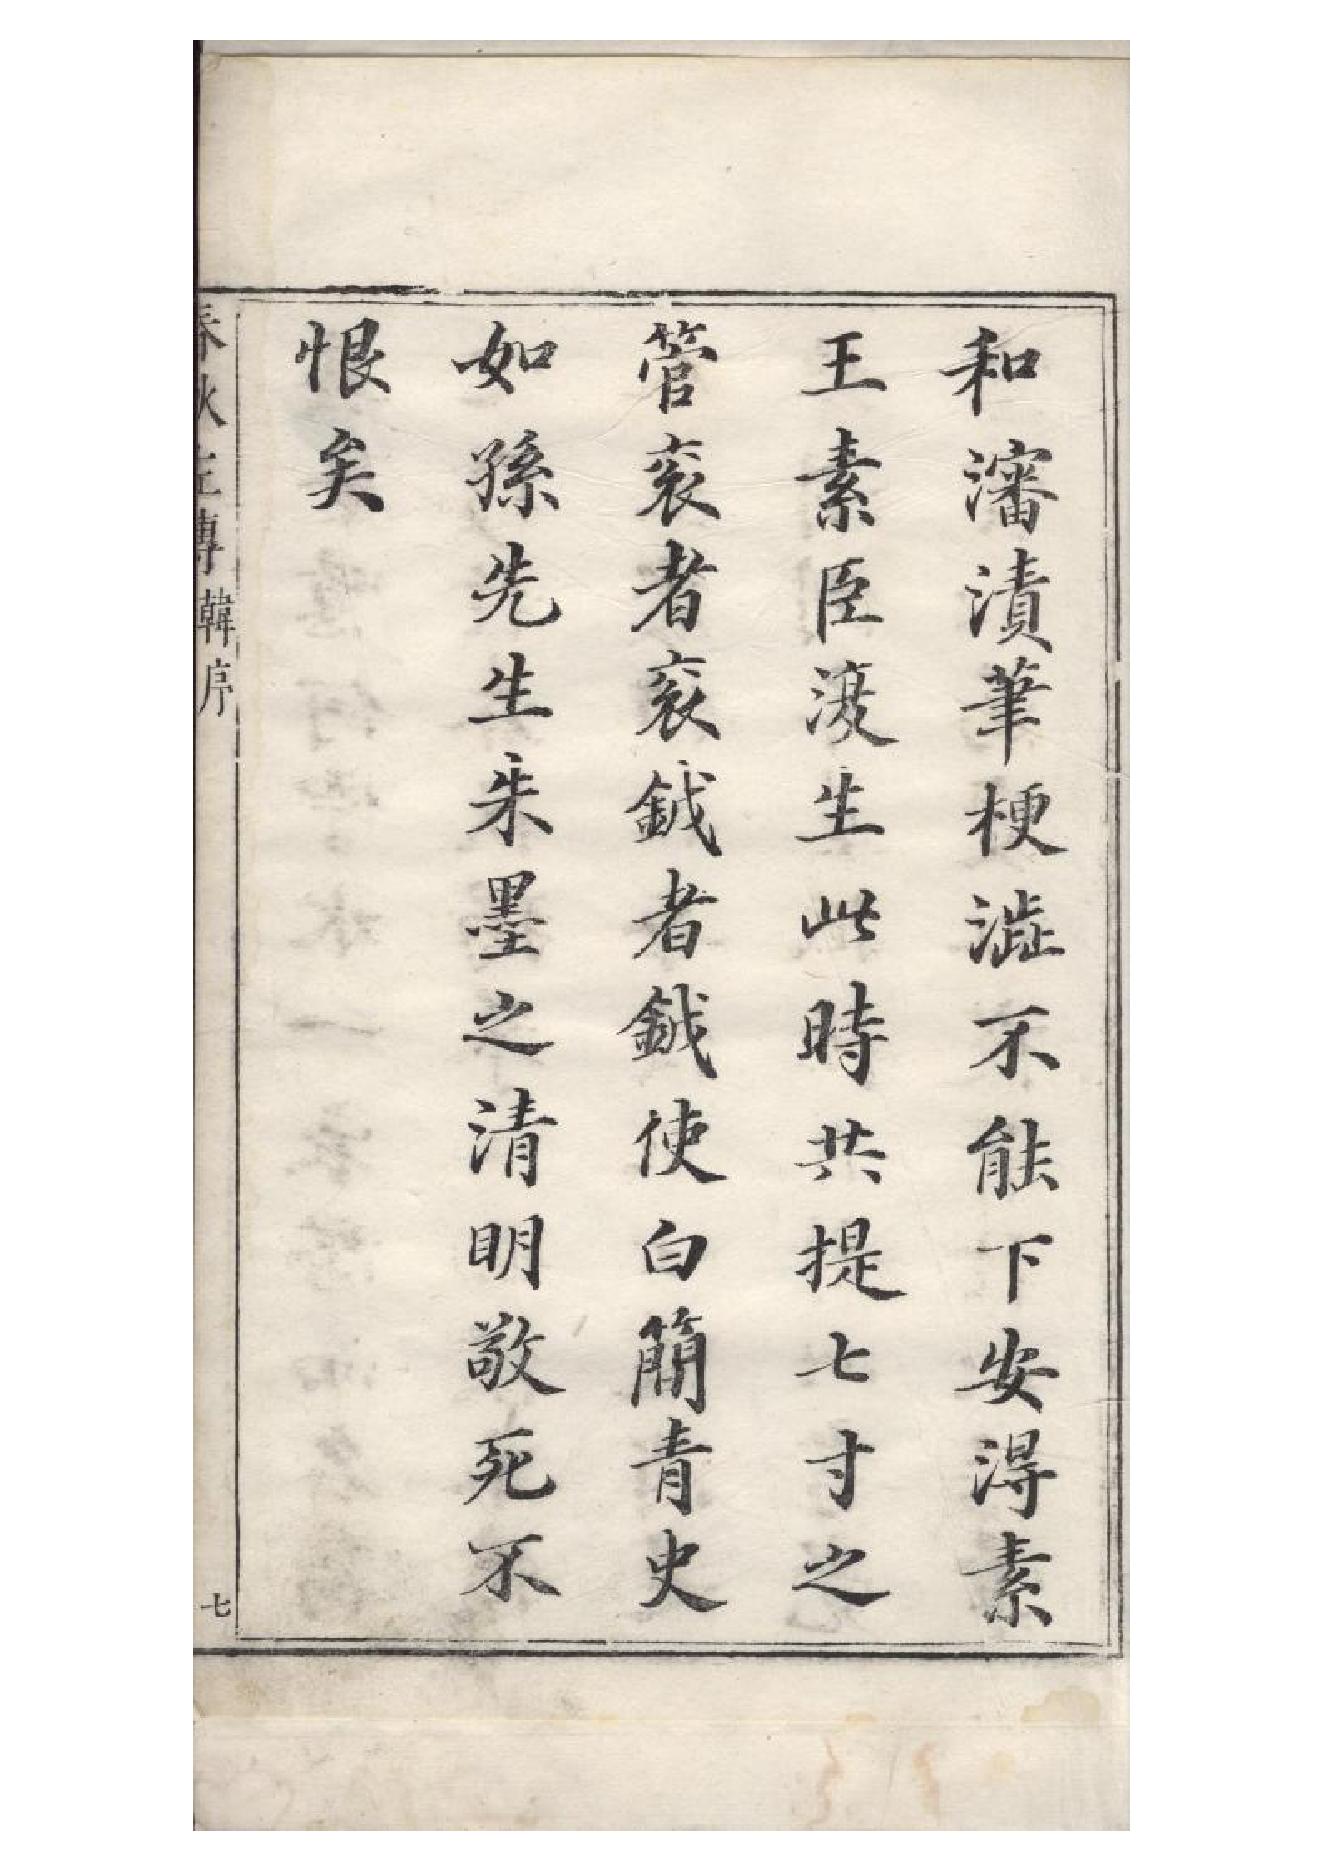 和瀋漬筆梗澁不能下安得素
王素臣復生此時共提七寸之
管衮者衮鉞者鉞使白簡青史
如孫先生朱墨之清明敬死不
恨矣
春秋左傳 韓序
七